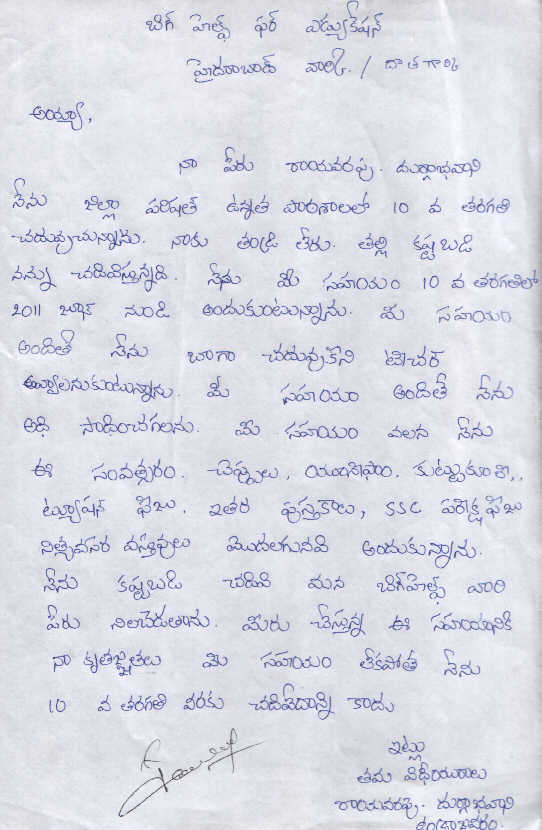 బిగ్ హెల్ప్ ఫర్ ఎడ్యుకేషన్
హైదరాబాద్ వారికి. / దాతగారికి
అయ్యా,
నా పేరు రాయవరపు. దుర్గాభవాని
నేను జిల్లా పరిషత్ ఉన్నత పాఠశాలలో 10 వ తరగతి
చదువుచున్నాను. నాకు తండ్రి లేరు. తల్లి కష్టబడి
నన్ను చదివిస్తున్నది. నేను మీ సహయం 10 వ తరగతిలో
2011 జూన్ నుండి అందుకుంటున్నాను. మీ సహయం
అందితే నేను బాగా చదువుకొని టీచర్
అవ్వాలనుకుంటున్నాను. మీ సహయం అందితే నేను
అది సాధించగలను. మీ సహయం వలన నేను
ఈ సంవత్సరం. చెప్పులు, యూనిఫాం. కుట్టుకూలి,,
ట్యూషన్ ఫీజు, ఇతర పుస్తకాలు, SSC పరీక్ష ఫీజు
నిత్యవసర వస్తువులు మొదలగునవి అందుకున్నాను.
నేను కష్టబడి చదివి మన బిగ్‌హెల్ప్ వారి
పేరు నిలబెడుతాను. మీరు చేస్తున్న ఈ సహయానికి
నా కృతజ్ఞతలు మీ సహయం లేకపోతే నేను
10 వ తరగతి వరకు చదివేదాన్ని కాదు
ఇట్లు
తమ విధేయురాలు
రాయవరపు. దుర్గాభవాని